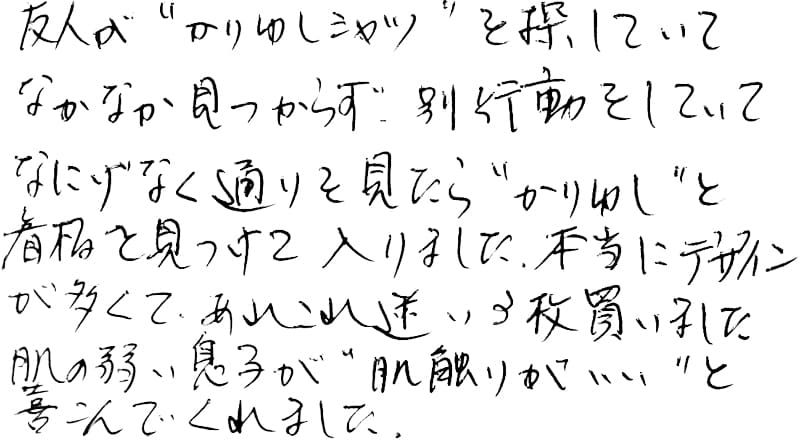 友人が“かりゆしシャツ”を探していて
なかなか見つからず、別行動をしていて
なにげなく通りを見たら“かりゆし”と
看板を見つけて入りました。本当にデザイン
が多くて、あれこれ迷い3枚買いました
肌の弱い息子が“肌触りがいい”と
喜こんでくれました。